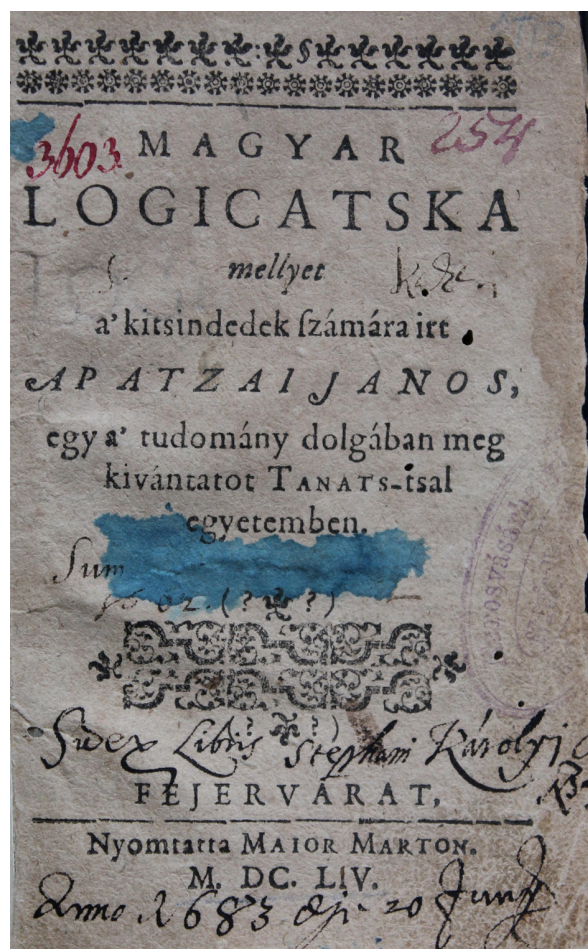 3603
254
MAGYAR
LOGICATSKA
mellyet
a' kitsindedek ſzámára irt
APATZAI JANOS,
egy a' tudomány dolgában meg
kivántatot TANATS-tsal
egyetemben.
Sum
(? ?)
? ?)
Sum ex Libris Stephani Károlyi
FEJERVARAT,
Nyomtatta MAIOR MARTON.
M. DC. LIV.
Anno 1683 20 Junÿ